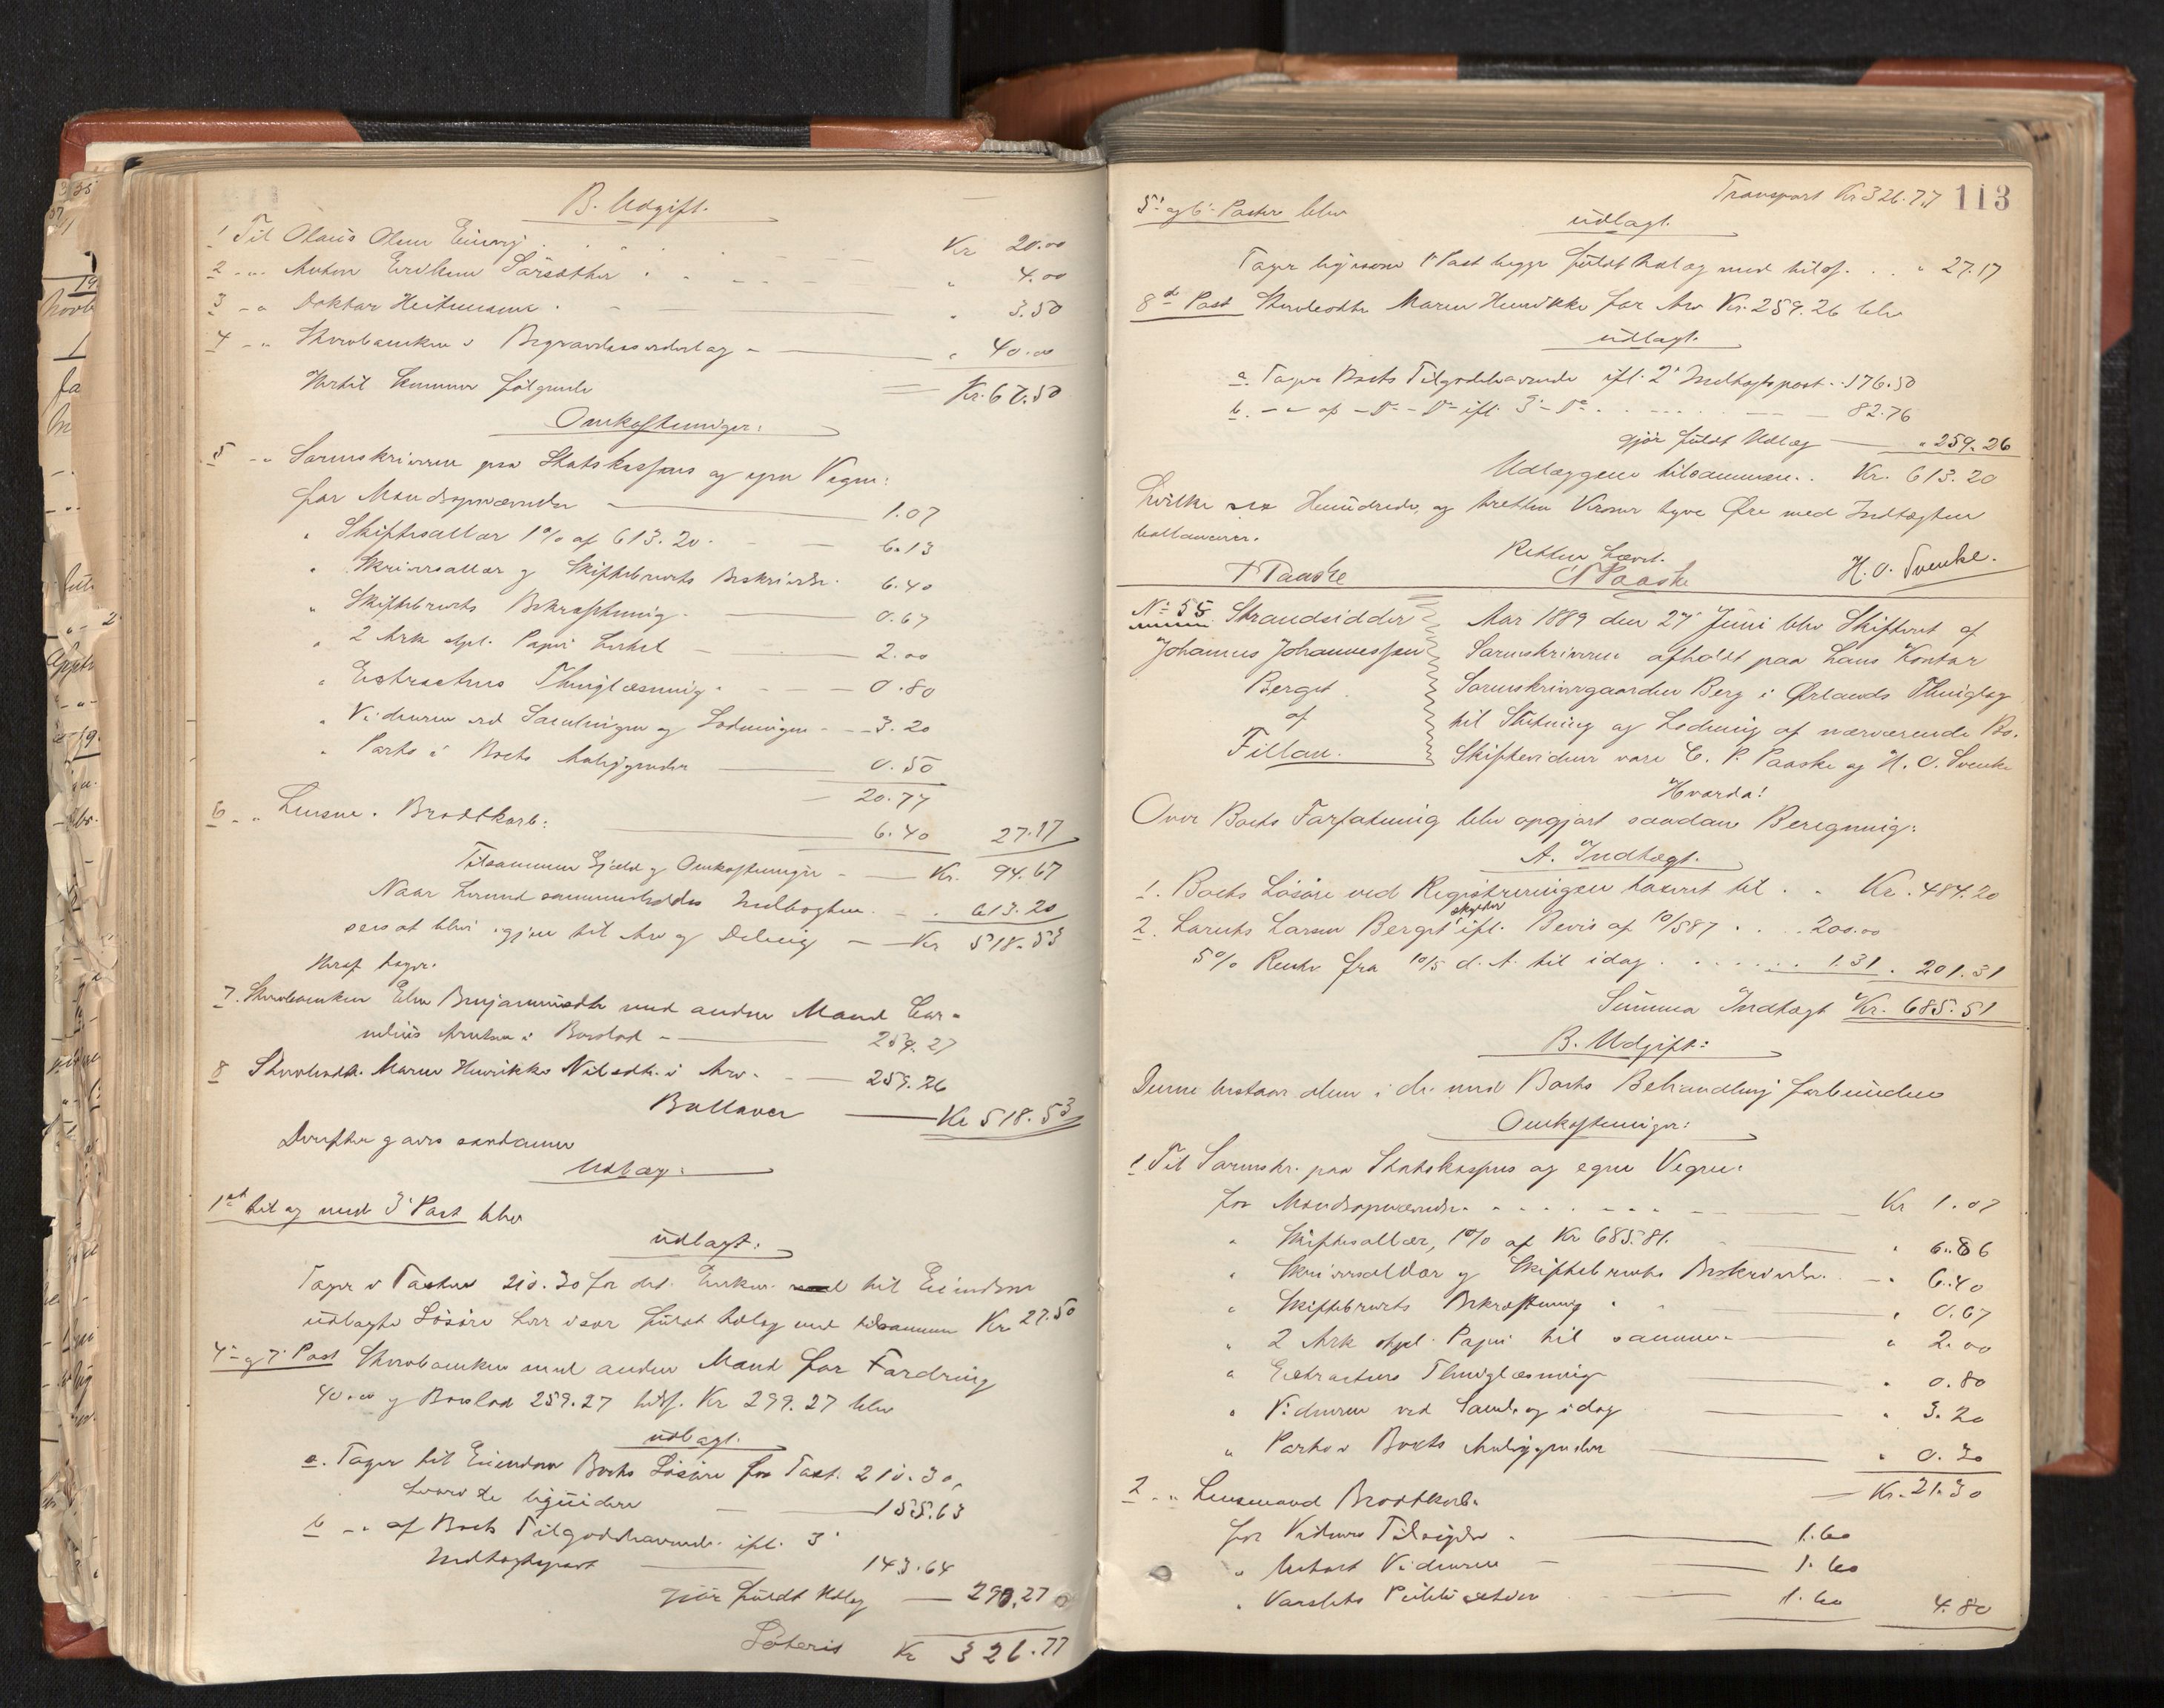 B. Udgift.
1 Til Olaus Olsen Eivvig . . . Kr 20.00
2 - " Anton Eriksen Sørsæther . - - - " 4.00
3 - " Doktor Heitmann . - " 3.50
4 - " Skrwbænken i Begravelsesvederlag - " 40.00
Hertil kommer følgende = Kr. 67.50
Omkostninger:
5 - " Sorenskriveren paa Statskassens og egne Vegne:
for Mandsopnævnelse 1.07
" Skiftesallær 1% af 613.20. - - 6.13
" Skriversallær og Skiftebrevets Beskrivelse. 6.40
" Skiftebrevets Bekræftning. 0.67
" 2 Ark stpl. Papir hertil 2.00
" Extractens Thinglæsning. - - - 0.80
" Vidnerne ved Samlingen og Lodningen - - 3.20
" Porto i Boets Anliggender 0.50
20.77
6 - " Lensm. Brodtkorb: 6.40 27.17
Tilsammen Gjæld og Omkostninger - Kr. 94.67
Naar herved sammenholdes Indtægten . - . 613.20
sees at blive igjen til Arv og Deling - Kr 518.53
Heraf tager:
7. Enken Elen Benjaminsdtr med anden Mand Cor-
nelius Arntsen i Boeslod - 259.27
8 Stervbodtr. Maren Henrikke Nilsdtr. i Arv. - 259.26
Ballancer Kr 518.53
Derefter gaves saadanne
Udlæg:
1ste til og med 3' Post blev
udlagt:
Tager i Taxten 210.30 for det Enken til Eiendom
udlagte Løsøre her især fuldt Udlæg med tilsammen Kr 27.50
4' og 7' Post Enken med anden Mand for Fordring
40.00 og Boeslod 259.27 tils. Kr 299.27 blev
udlagt.
a. Tager til Eiendom Boets Løsøre for Taxt. 210.30,
hvori de liqvidere 155.63
b - " af Boets Tilgodehavende ifl. 3'
Indtægtspost 143.64
gjør fuldt Udlæg 299.27
Lateris Kr 326.77
Transport Kr 326.77 113
5' og 6' Poster blev
udlagt.
Tager ligesom 1' Post begge fuldt Udlæg med tils. . . " 27.17
8de Post Stervbodtr Maren Henrikke for Arv Kr. 259.26 blev
udlagt.
a. Tager Boets Tilgodehavende ifl. 2' Indtægtspost. . 176.50
b. - " af - Do - Do ifl. 3' - Do . . . . 82.76
gjør fuldt Udlæg " 259.26
Udlæggene tilsammen. . Kr. 613.20
hvilke sex Hundrede og tretten Kroner tyve Øre med Indtægten
ballancerer.
Retten hævet.
T Paaske C P Paaske H. O. Svenke.
No 55 Strandsidder
Johannes Johannessen
Berget
af
Fillan.
Aar 1889 den 27' Juni blev Skifteret af
Sorenskriveren afholdt paa hans Kontor
Sorenskrivergaarden Berg i Ørlands Thinglag
til Slutning og Lodning af nærværende Bo.
Skiftevidner vare C. P. Paaske og H. O. Svenke
Hvorda!
Over Boets Forfatning blev opgjort saadan Beregning:
A. Indtægt.
1. Boets Løsøre ved Registreringen taxeret til . . Kr. 484.20
2. Laruts Larsen Berget skylder ifl. Bevis af 10/5 87 . . . 200.00
5% Rente fra 10/5 d. A. til idag . . . . . . 1.31 . 201.31
Summa Indtægt Kr. 685.51
B. Udgift:
Denne bestaar alene i de med Boets Behandling forbundne
Omkostninger:
1 Til Sorenskr. paa Statskassens og egne Vegne:
for Mandsopnævnelse . . . . . Kr 1.07
" Skiftesallær, 1% af Kr 685.51. " 6.86
" Skriversallær og Skiftebrevets Beskrivelse. " 6.40
" Skiftebrevets Bekræftning . " 0.67
" 2 Ark stpl. Papir til samme " 2.00
" Extractens Thinglæsning " 0.80
" Vidnerne ved Saml. og idag " 3.20
" Porto i Boets Anliggender " 0.30
Kr. 21.30
2 - " Lensmand Brodtkorb.
for Vidners Tilsigelse . 1.60
" Udkast Vidnerne - 1.60
" Varslets Publication 1.60 4.80